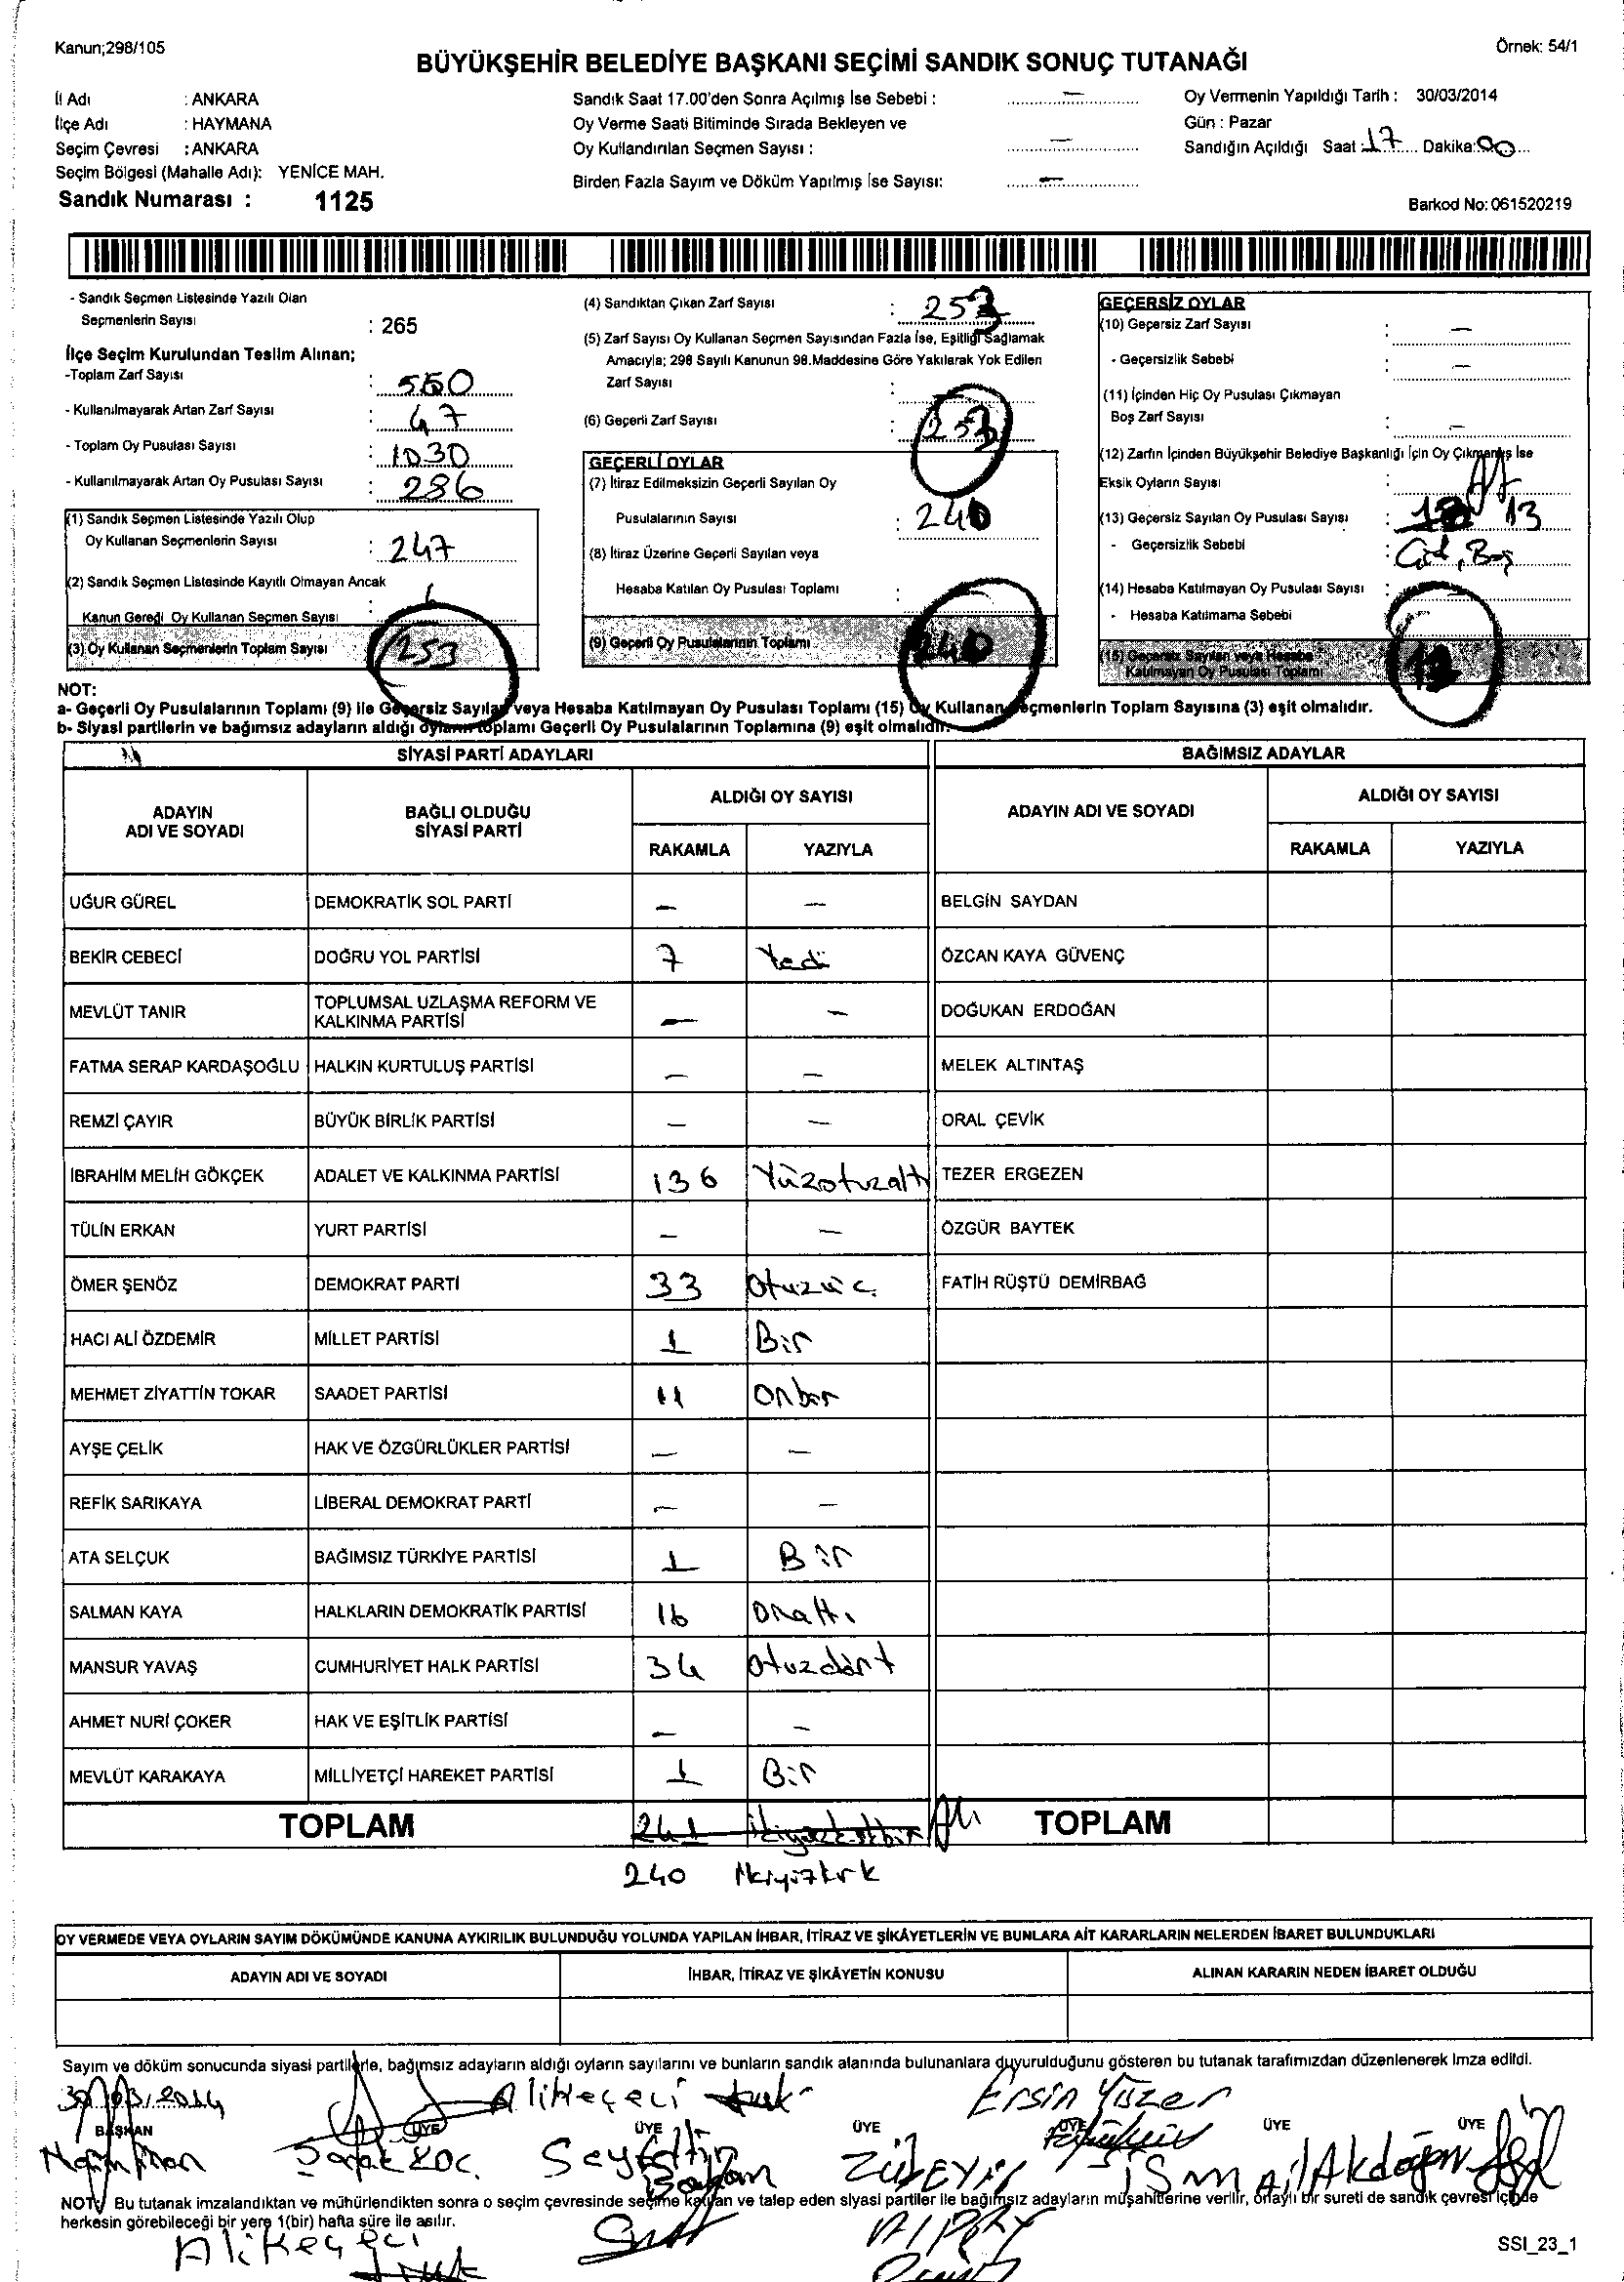 Kanun;298/105
Örnek: 54/1
BÜYÜKŞEHİR BELEDİYE BAŞKANI SEÇİMİ SANDIK SONUÇ TUTANAĞI
İl Adı : ANKARA
İlçe Adı : HAYMANA
Seçim Çevresi : ANKARA
Seçim Bölgesi (Mahalle Adı): YENİCE MAH.
Sandık Numarası : 1125
Sandık Saat 17.00'den Sonra Açılmış İse Sebebi : —
Oy Verme Saati Bitiminde Sırada Bekleyen ve
Oy Kullandırılan Seçmen Sayısı : —
Birden Fazla Sayım ve Döküm Yapılmış İse Sayısı: —
Oy Vermenin Yapıldığı Tarih : 30/03/2014
Gün : Pazar
Sandığın Açıldığı Saat : 17 Dakika: 00
Barkod No: 061520219
- Sandık Seçmen Listesinde Yazılı Olan
Seçmenlerin Sayısı : 265
İlçe Seçim Kurulundan Teslim Alınan;
-Toplam Zarf Sayısı : 550
- Kullanılmayarak Artan Zarf Sayısı : 47
- Toplam Oy Pusulası Sayısı : 1030
- Kullanılmayarak Artan Oy Pusulası Sayısı : 286
(1) Sandık Seçmen Listesinde Yazılı Olup
Oy Kullanan Seçmenlerin Sayısı : 247
(2) Sandık Seçmen Listesinde Kayıtlı Olmayan Ancak
Kanun Gereği Oy Kullanan Seçmen Sayısı : 6
(3) Oy Kullanan Seçmenlerin Toplam Sayısı 253
(4) Sandıktan Çıkan Zarf Sayısı : 253
(5) Zarf Sayısı Oy Kullanan Seçmen Sayısından Fazla İse, Eşitliği Sağlamak
Amacıyla; 298 Sayılı Kanunun 98.Maddesine Göre Yakılarak Yok Edilen
Zarf Sayısı :
(6) Geçerli Zarf Sayısı : 253
GEÇERLİ OYLAR
(7) İtiraz Edilmeksizin Geçerli Sayılan Oy
Pusulalarının Sayısı : 240
(8) İtiraz Üzerine Geçerli Sayılan veya
Hesaba Katılan Oy Pusulası Toplamı :
(9) Geçerli Oy Pusulalarının Toplamı 240
GEÇERSİZ OYLAR
(10) Geçersiz Zarf Sayısı : —
- Geçersizlik Sebebi : —
(11) İçinden Hiç Oy Pusulası Çıkmayan
Boş Zarf Sayısı : —
(12) Zarfın İçinden Büyükşehir Belediye Başkanlığı İçin Oy Çıkmamış İse
Eksik Oyların Sayısı :
(13) Geçersiz Sayılan Oy Pusulası Sayısı : 13
- Geçersizlik Sebebi : Boş
(14) Hesaba Katılmayan Oy Pusulası Sayısı :
- Hesaba Katılmama Sebebi :
(15) Geçersiz Sayılan veya Hesaba
Katılmayan Oy Pusulası Toplamı
NOT:
a- Geçerli Oy Pusulalarının Toplamı (9) ile Geçersiz Sayılan veya Hesaba Katılmayan Oy Pusulası Toplamı (15) Oy Kullanan Seçmenlerin Toplam Sayısına (3) eşit olmalıdır.
b- Siyasi partilerin ve bağımsız adayların aldığı oyların toplamı Geçerli Oy Pusulalarının Toplamına (9) eşit olmalıdır.
SİYASİ PARTİ ADAYLARI
BAĞIMSIZ ADAYLAR
ADAYIN ADI VE SOYADI BAĞLI OLDUĞU SİYASİ PARTİ ALDIĞI OY SAYISI ADAYIN ADI VE SOYADI ALDIĞI OY SAYISI
RAKAMLA YAZIYLA RAKAMLA YAZIYLA
UĞUR GÜREL DEMOKRATİK SOL PARTİ — — BELGİN SAYDAN
BEKİR CEBECİ DOĞRU YOL PARTİSİ 7 Yedi ÖZCAN KAYA GÜVENÇ
MEVLÜT TANIR TOPLUMSAL UZLAŞMA REFORM VE KALKINMA PARTİSİ — — DOĞUKAN ERDOĞAN
FATMA SERAP KARDAŞOĞLU HALKIN KURTULUŞ PARTİSİ — — MELEK ALTINTAŞ
REMZİ ÇAYIR BÜYÜK BİRLİK PARTİSİ — — ORAL ÇEVİK
İBRAHİM MELİH GÖKÇEK ADALET VE KALKINMA PARTİSİ 136 Yüzotuzaltı TEZER ERGEZEN
TÜLİN ERKAN YURT PARTİSİ — — ÖZGÜR BAYTEK
ÖMER ŞENÖZ DEMOKRAT PARTİ 33 Otuzüç FATİH RÜŞTÜ DEMİRBAĞ
HACI ALİ ÖZDEMİR MİLLET PARTİSİ 1 Bir
MEHMET ZİYATTİN TOKAR SAADET PARTİSİ 11 Onbir
AYŞE ÇELİK HAK VE ÖZGÜRLÜKLER PARTİSİ — —
REFİK SARIKAYA LİBERAL DEMOKRAT PARTİ — —
ATA SELÇUK BAĞIMSIZ TÜRKİYE PARTİSİ 1 Bir
SALMAN KAYA HALKLARIN DEMOKRATİK PARTİSİ 16 Onaltı
MANSUR YAVAŞ CUMHURİYET HALK PARTİSİ 34 Otuzdört
AHMET NURİ ÇOKER HAK VE EŞİTLİK PARTİSİ — —
MEVLÜT KARAKAYA MİLLİYETÇİ HAREKET PARTİSİ 1 Bir
TOPLAM 241 İkiyüzkırkbir TOPLAM
240 İkiyüzkırk
OY VERMEDE VEYA OYLARIN SAYIM DÖKÜMÜNDE KANUNA AYKIRILIK BULUNDUĞU YOLUNDA YAPILAN İHBAR, İTİRAZ VE ŞİKÂYETLERİN VE BUNLARA AİT KARARLARIN NELERDEN İBARET BULUNDUKLARI
ADAYIN ADI VE SOYADI İHBAR, İTİRAZ VE ŞİKÂYETİN KONUSU ALINAN KARARIN NEDEN İBARET OLDUĞU
Sayım ve döküm sonucunda siyasi partilerle, bağımsız adayların aldığı oyların sayılarını ve bunların sandık alanında bulunanlara duyurulduğunu gösteren bu tutanak tarafımızdan düzenlenerek imza edildi.
30/03/2014 Ali Keçeci Ersin Yüzer
BAŞKAN ÜYE ÜYE ÜYE ÜYE ÜYE ÜYE
Şafak KOÇ Seyfettin ZÜBEYİR İSMAİL Akdoğan
NOT: Bu tutanak imzalandıktan ve mühürlendikten sonra o seçim çevresinde seçime katılan ve talep eden siyasi partiler ile bağımsız adayların müşahitlerine verilir, onaylı bir sureti de sandık çevresi içinde
herkesin görebileceği bir yere 1(bir) hafta süre ile asılır.
Ali Keçeci
SSI_23_1